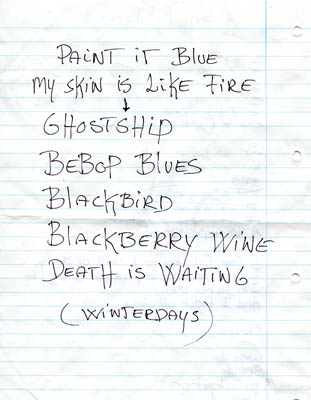 PAINT IT BLUE
MY SKIN IS LIKE FIRE
↓
GHOSTSHIP
BEBOP BLUES
BLACKBIRD
BLACKBERRY WINE
DEATH IS WAITING
(WINTERDAYS)